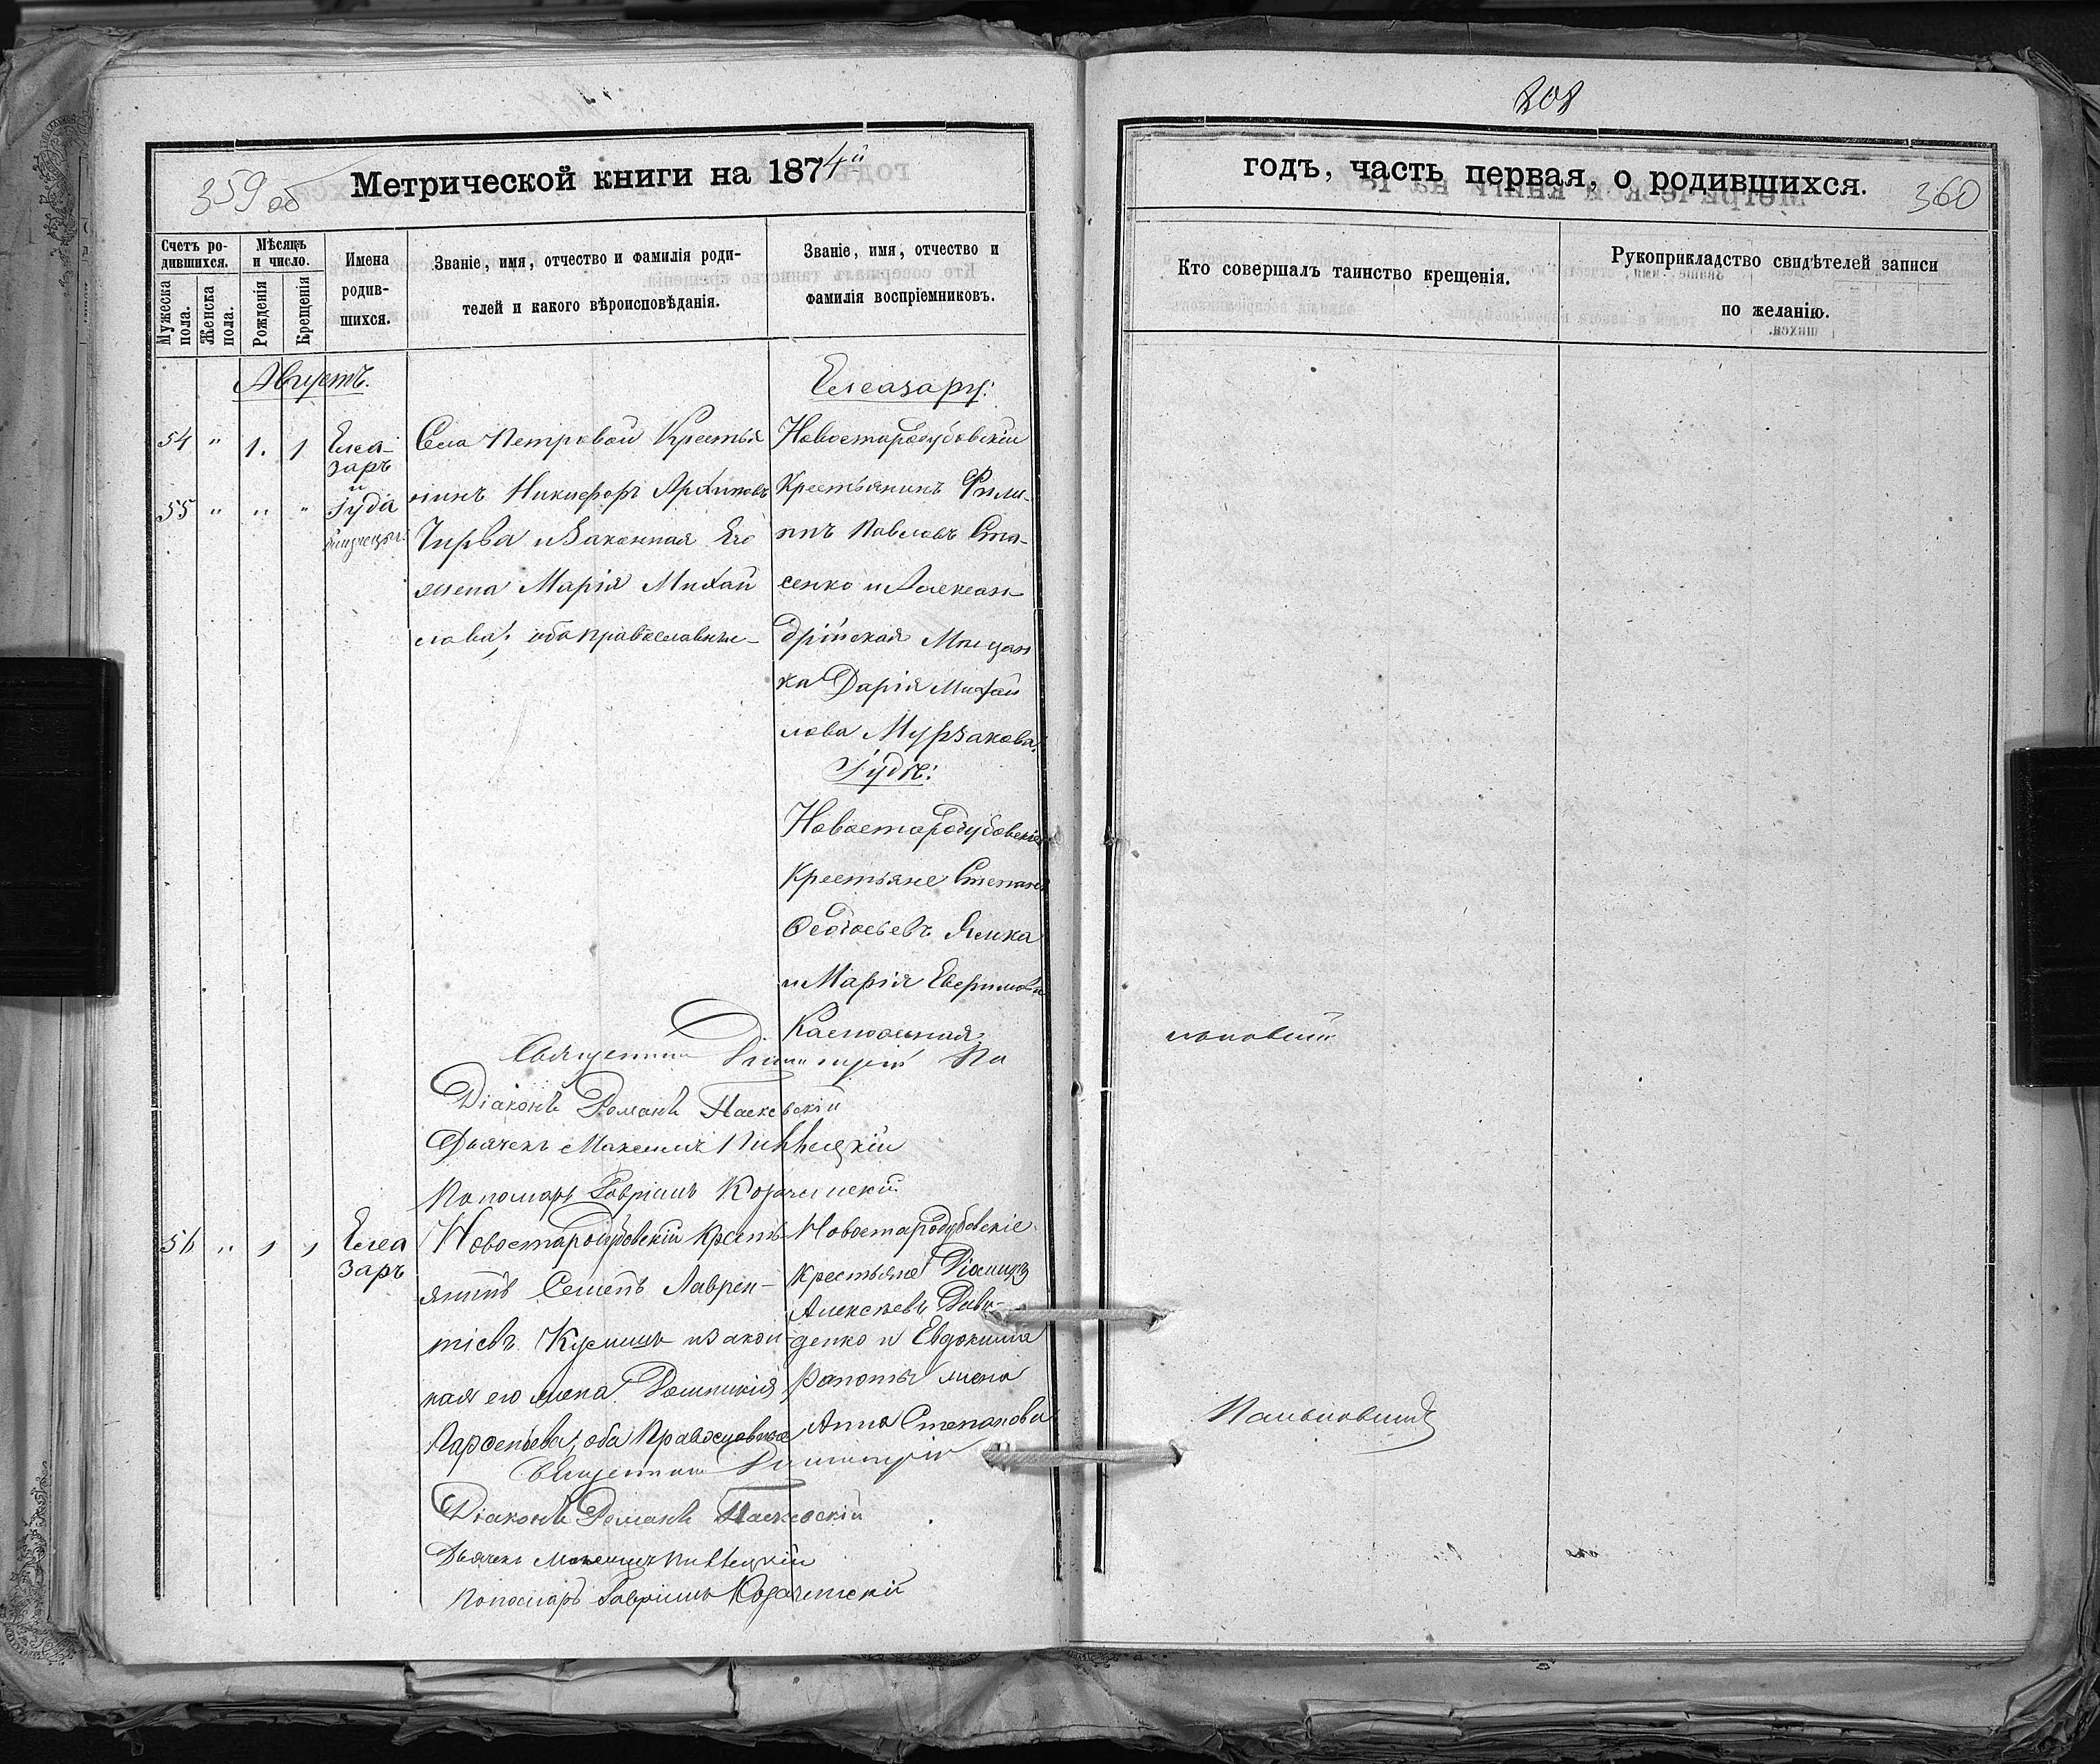 208
359 об
Метрической книги на 1874й
годъ, часть первая, о родившихся.
360
Счетъ ро-
дившихся.
Мужеска пола.
Женска пола.
Мѣсяцъ
и число.
Рожденія
Крещенія
Имена
родив-
шихся.
Званіе, имя, отчество и фамилія роди-
телей и какого вѣроисповѣданія.
Званіе, имя, отчество и
фамилія воспріемниковъ.
Кто совершалъ таинство крещенія.
Рукоприкладство свидѣтелей записи
по желанію.
Августъ.
54 " 1. 1
Елеа-
заръ
и
55 " " "
Іуда
близнецы
Села Петровой Крестья
нинъ Никифоръ Архиповъ
Чирва и Законная Его
жена Марія Михай
лова; оба православные
Елеазару:
Новостародубовскій
Крестьянинъ Фили-
ппъ Павловъ Ста-
сенко и Алексан
дрійская Мѣщан
ка Дарія Михай
лова Мурзакова.
Іудѣ:
Новостародубовскіе
Крестьяне Степанъ
Ѳеодосьевъ Ялика
и Марія
Священникъ Димитрій Па
льновскій
Діаконъ Романъ Паскевскій
Дьячекъ Максимъ
Пономарь Гавріилъ
56 " 1 1
Елеа
заръ
Новостародубовскій Кресть
янинъ Семенъ Лаврен-
тіевъ и закон
ная его жена Домникія
Парфеньева, оба Православные
Новостародубовскіе
Крестьяне
Алексѣевъ Дави-
денко и Евдокима
жена
Анна Степанова
Священникъ Димитрій
Пальновскій
Діаконъ Романъ Паскевскій
Дьячекъ Максимъ
Пономарь Гавріилъ